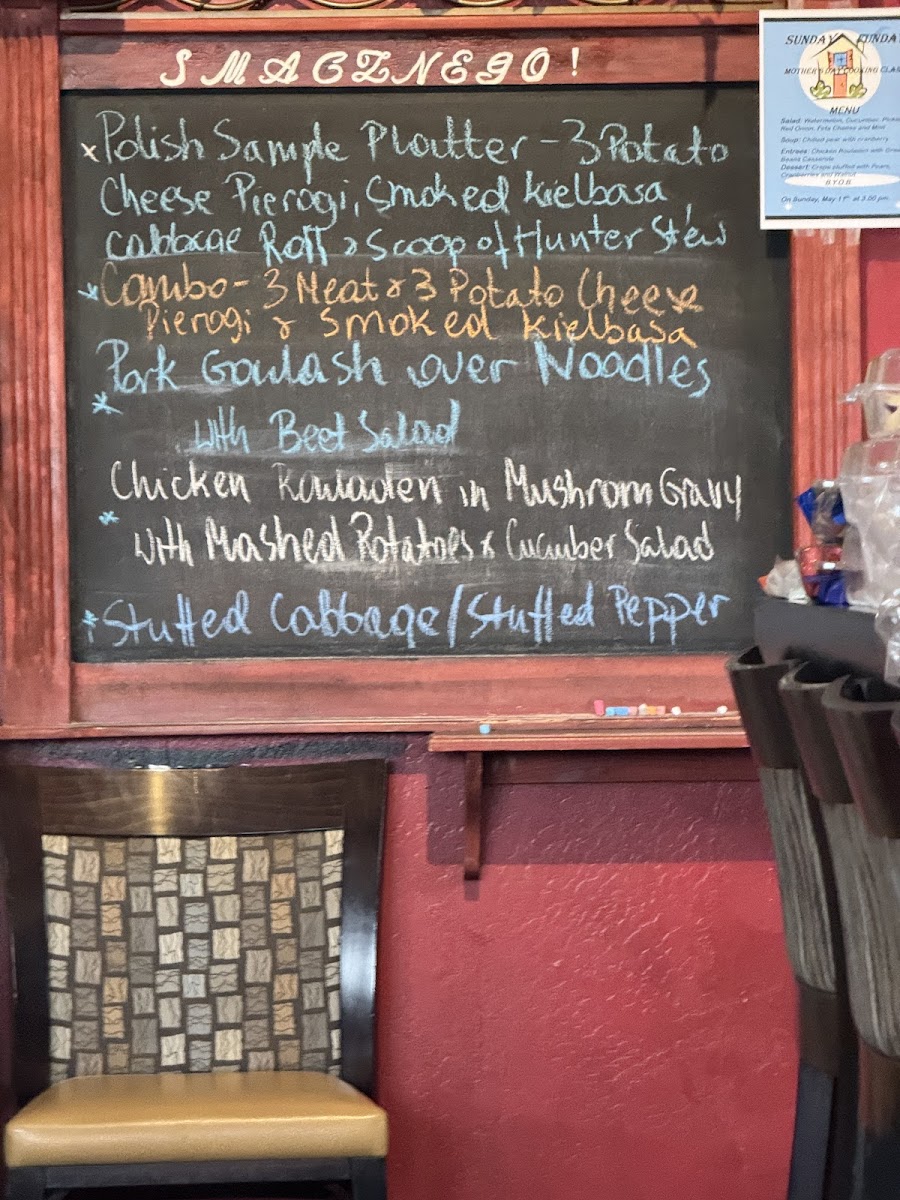 SMACZNEGO!
x Polish Sample Ploutter - 3 Potato
Cheese Pierogi, Smoked Kielbasa,
Cabbage Roll & Scoop of Hunter Stew
* Combo - 3 Meat & 3 Potato Cheese
Pierogi & Smoked Kielbasa
Pork Goulash over Noodles
* with Beet Salad
Chicken Rouladen in Mushrom Gravy
* with Mashed Potatoes & Cucumber Salad
* Stuffed Cabbage/Stuffed Pepper
SUNDAY FUNDA
MOTHER'S DAY COOKING CLAS
MENU
Salad: Watermelon, Cucumber,
Red Onion, Feta Cheese and Mint
Soup: Chilled pear with cranberry
Entrees: Chicken Rouladen with Gree
Beans Casserole
Dessert: Crepe stuffed with Pears,
Cranberries and Walnut
B.Y.O.B
On Sunday, May 11th at 3.00 pm.